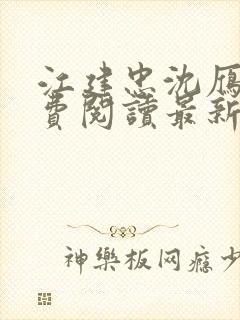 江建忠沈雁
費閱讀最新
神樂板网瘾少